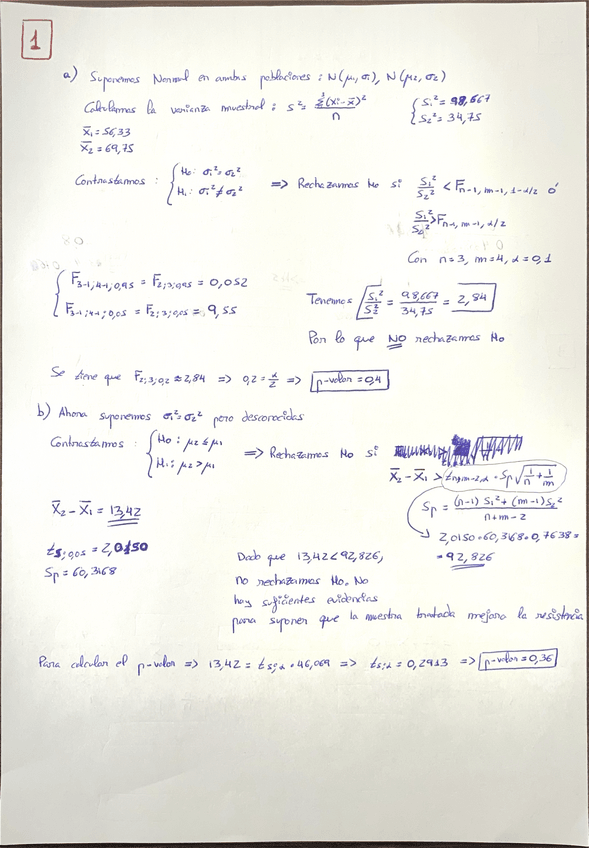 1
a) Suponemos Normal en ambas poblaciones : N(μ₁,σ₁), N(μ₂,σ₂)
Calculamos la varianza muestral : s² = Σ(xi-x̄)²/n { S₁² = 98,667
S₂² = 34,75
x̄₁ = 56,33
x̄₂ = 69,75
Contrastamos : { H₀: σ₁² = σ₂² => Rechazamos H₀ si S₁²/S₂² < F n-1, m-1, 1-α/2 ó
H₁: σ₁² ≠ σ₂² S₁²/S₂² > F n-1, m-1, α/2
Con n=3, m=4, α=0,1
{ F 3-1;4-1;0,95 = F 2;3;0,95 = 0,052
F 3-1;4-1;0,05 = F 2;3;0,05 = 9,55
Tenemos S₁²/S₂² = 98,667/34,75 = 2,84
Por lo que NO rechazamos H₀
Se tiene que F 2;3;0,2 ≈ 2,84 => 0,2 = α/2 => p-valor = 0,4
b) Ahora suponemos σ₁² = σ₂² pero desconocidas
Contrastamos : { H₀ : μ₂ ≤ μ₁ => Rechazamos H₀ si
H₁ : μ₂ > μ₁
x̄₂ - x̄₁ > t n+m-2,α · Sp √(1/n + 1/m)
x̄₂ - x̄₁ = 13,42
Sp = (n-1) S₁² + (m-1) S₂² / n+m-2
t 5;0,05 = 2,0150
2,0150 · 60,3168 · 0,7638 =
Sp = 60,3168
= 92,826
Dado que 13,42 < 92,826,
no rechazamos H₀. No
hay suficientes evidencias
para suponer que la muestra tratada mejora la resistencia
Para calcular el p-valor => 13,42 = t 5;α · 46,069 => t 5;α = 0,2913 => p-valor = 0,36